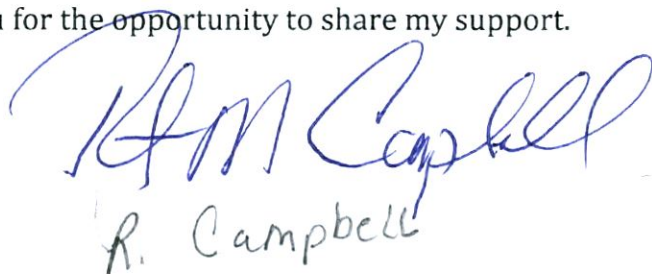 for the opportunity to share my support.
M Campbell
R. Campbell